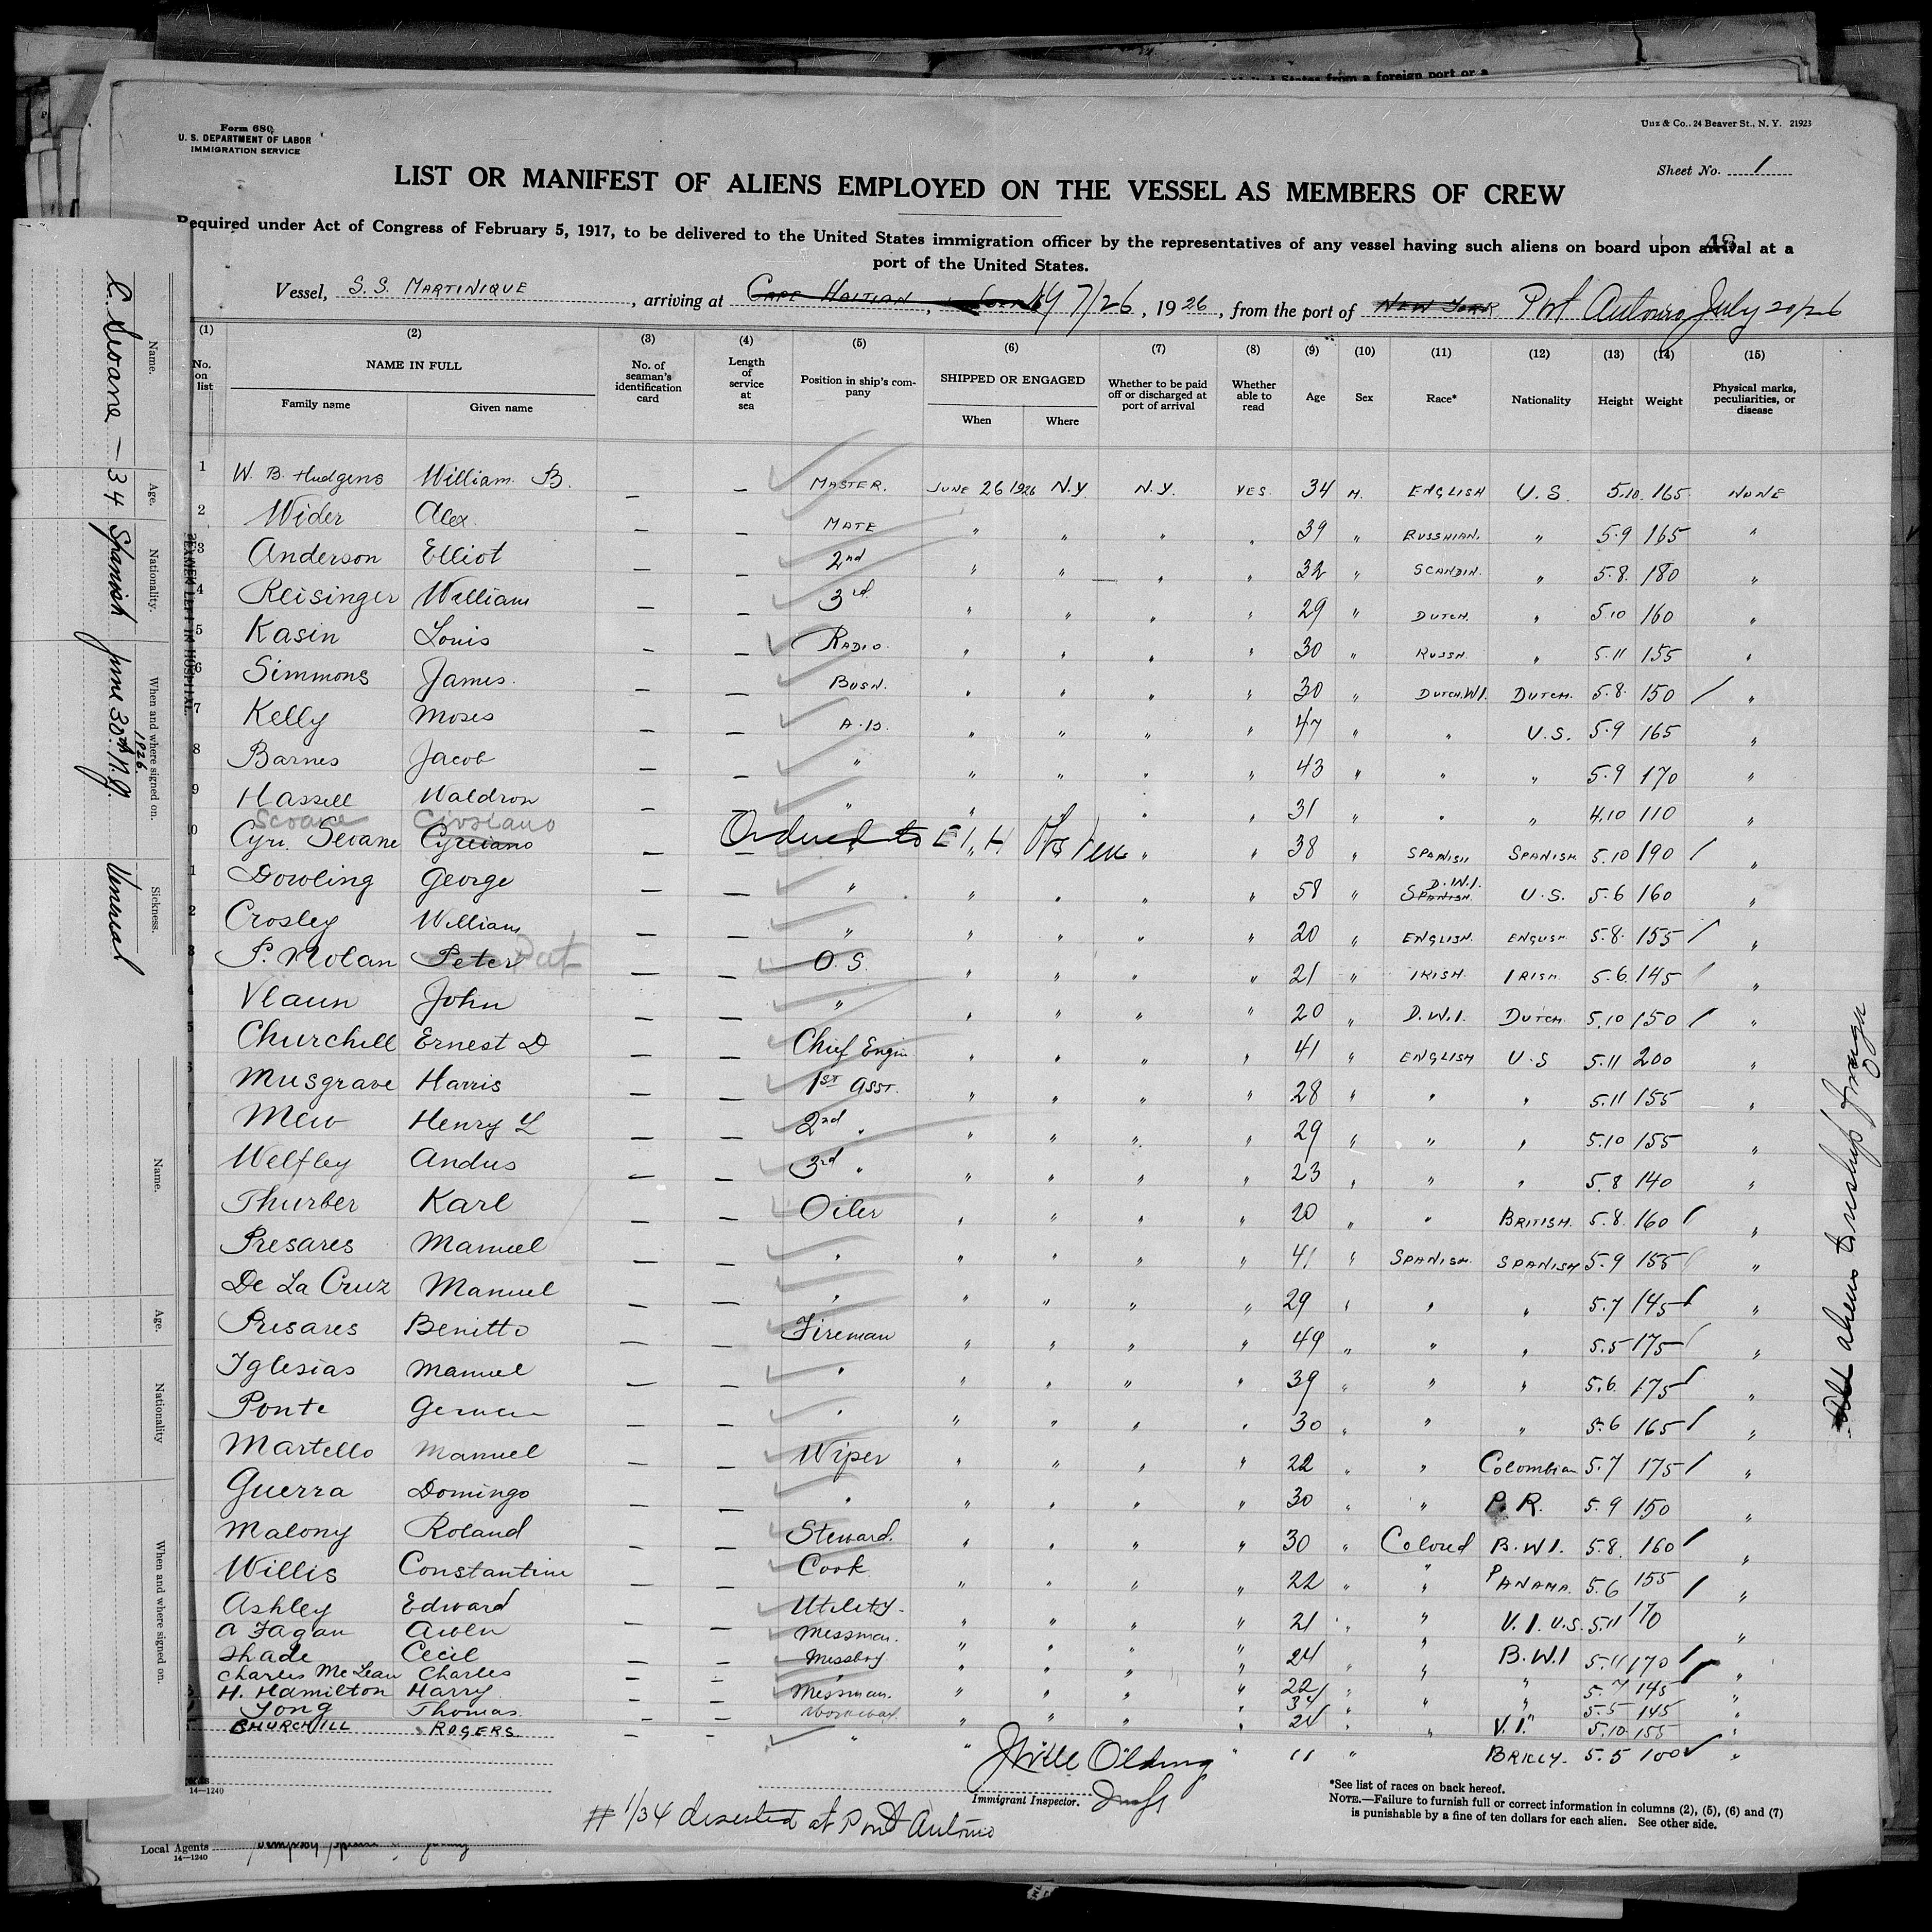 United States from a foreign port or a
Form 680
U. S. DEPARTMENT OF LABOR
IMMIGRATION SERVICE
Unz & Co., 24 Beaver St., N. Y. 21923
Sheet No. 1
LIST OR MANIFEST OF ALIENS EMPLOYED ON THE VESSEL AS MEMBERS OF CREW
48
Required under Act of Congress of February 5, 1917, to be delivered to the United States immigration officer by the representatives of any vessel having such aliens on board upon arrival at a
port of the United States.
Vessel, S.S. MARTINIQUE, arriving at CAPE HAITIAN, NY 7/26, 1926, from the port of NEW YORK Port Antonio July 20/26
(1) (2) (3) (4) (5) (6) (7) (8) (9) (10) (11) (12) (13) (14) (15)
No. on list NAME IN FULL Family name Given name No. of seaman's identification card Length of service at sea Position in ship's company SHIPPED OR ENGAGED When Where Whether to be paid off or discharged at port of arrival Whether able to read Age Sex Race* Nationality Height Weight Physical marks, peculiarities, or disease
1 W. B. Hudgens William B. — — MASTER. JUNE 26 1926 N.Y. N.Y. YES. 34 M. ENGLISH U.S. 5.10. 165 NONE
2 Wider Alex. — — MATE " " " " 39 " RUSSHIAN. " 5.9 165 "
3 Anderson Elliot — — 2nd " " " " 32 " SCANDIN. " 5.8. 180 "
4 Reisinger William — — 3rd " " " " 29 " DUTCH. " 5.10 160 "
5 Kasin Louis — — RADIO. " " " " 30 " RUSSN. " 5.11 155 "
6 Simmons James. — — BOSN. " " " " 30 " DUTCH.W.I. DUTCH. 5.8. 150 / "
7 Kelly Moses — — A.B. " " " " 47 " " U.S. 5.9 165 "
8 Barnes Jacob — — " " " " " 43 " " " 5.9 170 "
9 Hassell Waldron — — " " " " " 31 " " " 4.10 110 "
Seoane Cipriano
0 Cyri. Seoane Cypriano Ordered to E.I. H " " 38 " SPANISH SPANISH 5.10 190 / "
1 Dowling George — — " " " " " 58 " D.W.I. SPANISH. U.S. 5.6 160 "
2 Crosley William — — " " " " " 20 " ENGLISH. ENGLISH. 5.8. 155 / "
3 P. Nolan Peter Pat — — O.S. " " " " 21 " IRISH. IRISH. 5.6. 145 / "
4 Vlaun John — — " " " " " 20 " D.W.I. DUTCH 5.10 150 / "
5 Churchill Ernest D — — Chief Engin " " " " 41 " ENGLISH U.S 5.11 200 "
6 Musgrave Harris — — 1ST ASST. " " " " 28 " " " 5.11 155 "
Mew Henry L — — 2nd " " " " " 29 " " " 5.10 155 "
Welfley Andus — — 3rd " " " " " 23 " " " 5.8 140 "
Thurber Karl — — Oiler " " " " 20 " " BRITISH. 5.8. 160 / "
Presares Manuel — — " " " " " 41 " SPANISH. SPANISH 5.9 155 / "
De La Cruz Manuel — — " " " " " 29 " " " 5.7 145 / "
Presares Benitto — — Fireman " " " " 49 " " " 5.5 175 / "
Iglesias Manuel — — " " " " " 39 " " " 5.6. 175 / "
Ponte — — " " " " " 30 " " " 5.6 165 / "
Martello Manuel — — Wiper " " " " 22 " " Colombian 5.7 175 / "
Guerra Domingo — — " " " " " 30 " " P.R. 5.9 150 "
Malony Roland — — Steward. " " " " 30 " Colored B.W.I. 5.8. 160 / "
Willis Constantine — — Cook " " " " 22 " " PANAMA. 5.6 155 / "
Ashley Edward — — Utility. " " " " 21 " " V.I. U.S. 5.11 170 "
A Fagan — — Messman. " " " " 24 " " B.W.I 5.11 170 / "
Shade Cecil — — Messboy " " " " 22 " " " 5.7 145 / "
Charles McLean Charles — — " " " " " 34 " " " 5.5 145 "
H. Hamilton Harry — — Messman. " " " " 24 " " V.I. 5.10 155 "
Tong Thomas. — — Workaway
CHURCHILL ROGERS. — — " " " 11 " 5.5 100 "
Immigrant Inspector.
# 1/34 deserted at Port Antonio
*See list of races on back hereof.
NOTE.—Failure to furnish full or correct information in columns (2), (5), (6) and (7)
is punishable by a fine of ten dollars for each alien. See other side.
14—1240
Local Agents
14—1240
aliens to reship foreign
SEAMEN LEFT IN HOSPITAL.
Name. Age. Nationality. When and where signed on. Sickness.
C. Seoane — 34 Spanish June 30th N.Y. 1926. Venereal
Name. Age. Nationality When and where signed on.